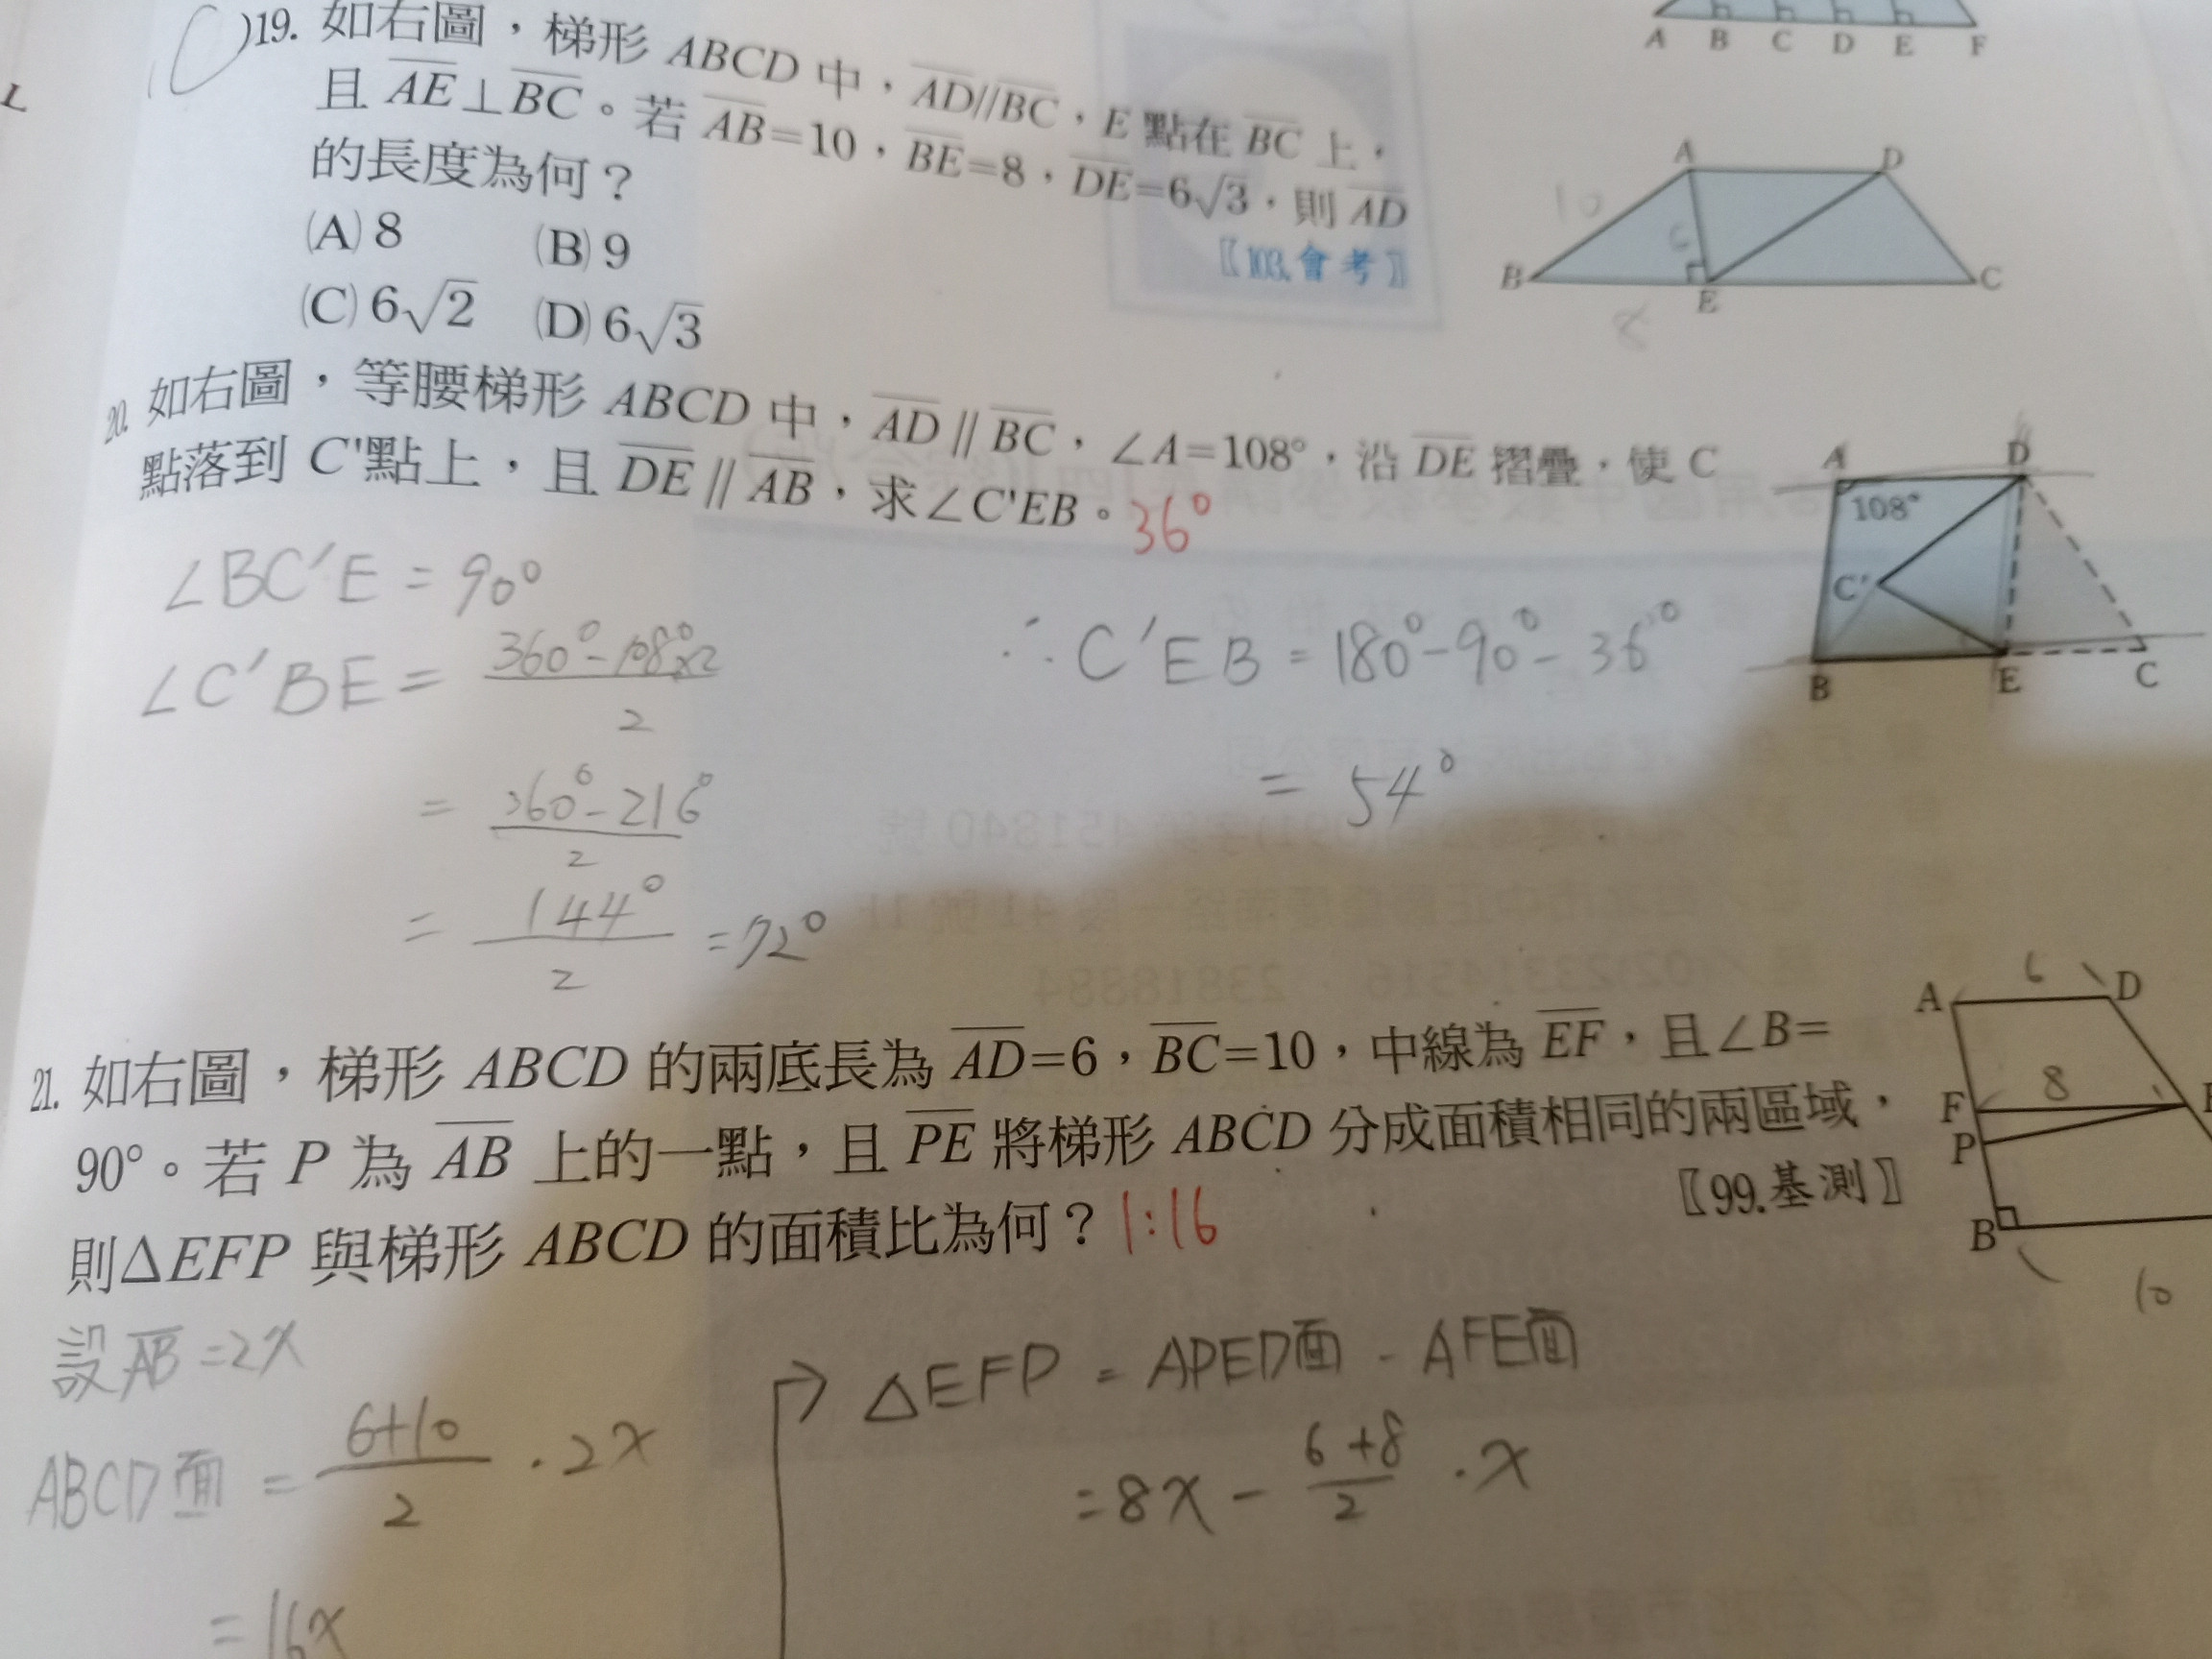 A B C D E F
)19. 如右圖，梯形 ABCD 中，AD//BC，E 點在 BC 上，
且 AE⊥BC。若 AB=10，BE=8，DE=6√3，則 AD
的長度為何？
〖103.會考〗
(A) 8 (B) 9
(C) 6√2 (D) 6√3
A D
10 6
B E C
8
20. 如右圖，等腰梯形 ABCD 中，AD // BC，∠A=108°，沿 DE 摺疊，使 C
點落到 C'點上，且 DE // AB，求∠C'EB。36°
A D
108°
C'
B E C
∠BC'E = 90°
∠C'BE = 360°-108°×2 / 2
= 360°-216° / 2
= 144° / 2 = 72°
∴ C'EB = 180°-90°-36°
= 54°
21. 如右圖，梯形 ABCD 的兩底長為 AD=6，BC=10，中線為 EF，且∠B=
90°。若 P 為 AB 上的一點，且 PE 將梯形 ABCD 分成面積相同的兩區域，
則ΔEFP 與梯形 ABCD 的面積比為何？1:16
〖99.基測〗
6
A D
8
F
P
B
10
設AB=2x
ABCD面 = 6+10 / 2 · 2x
= 16x
→ △EFP = APED面 - AFE面
= 8x - 6+8 / 2 · x